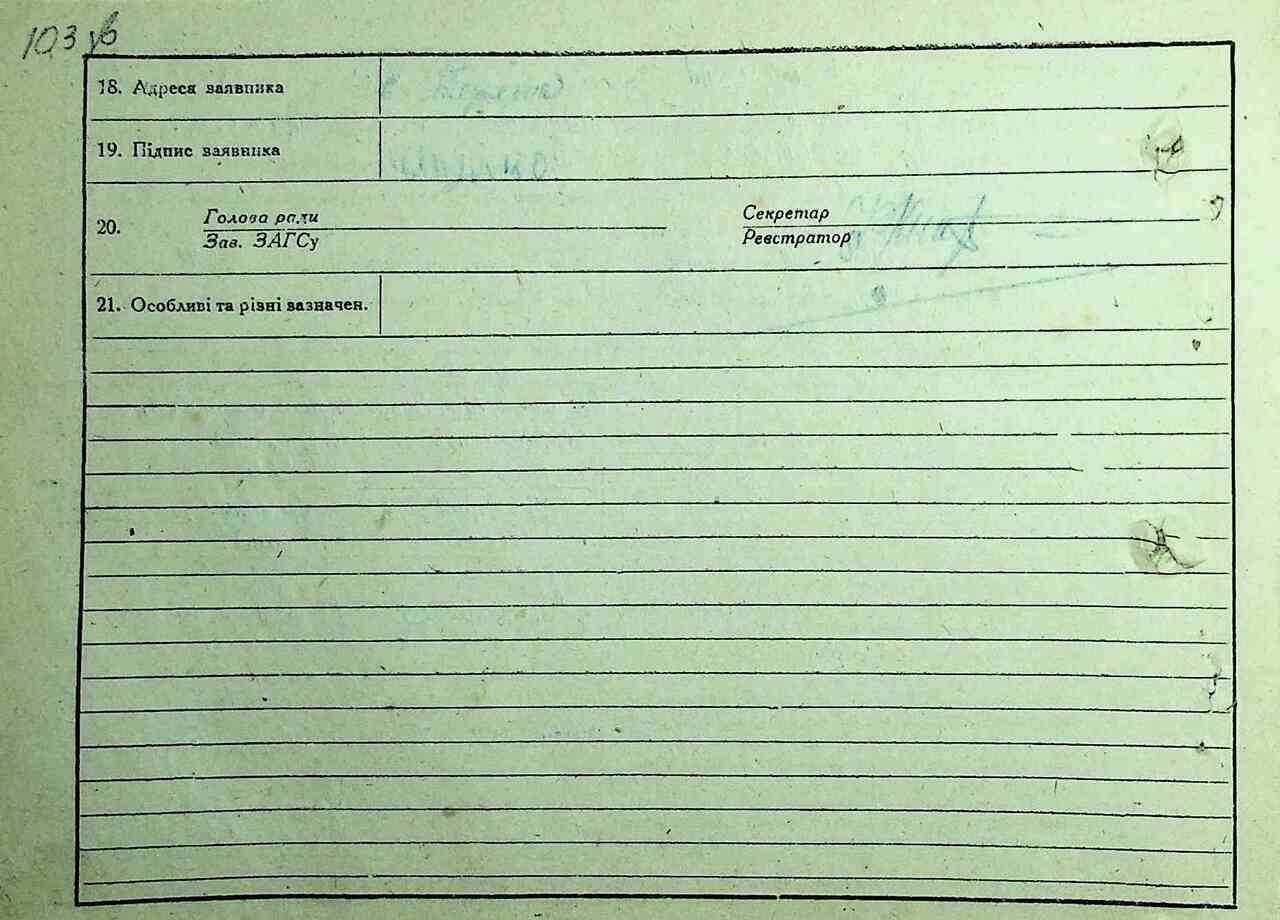 103 зв
18. Адреса заявника
19. Підпис заявника
20. Голова ради Секретар
Зав. ЗАГСу Реєстратор
21. Особливі та різні зазначен.